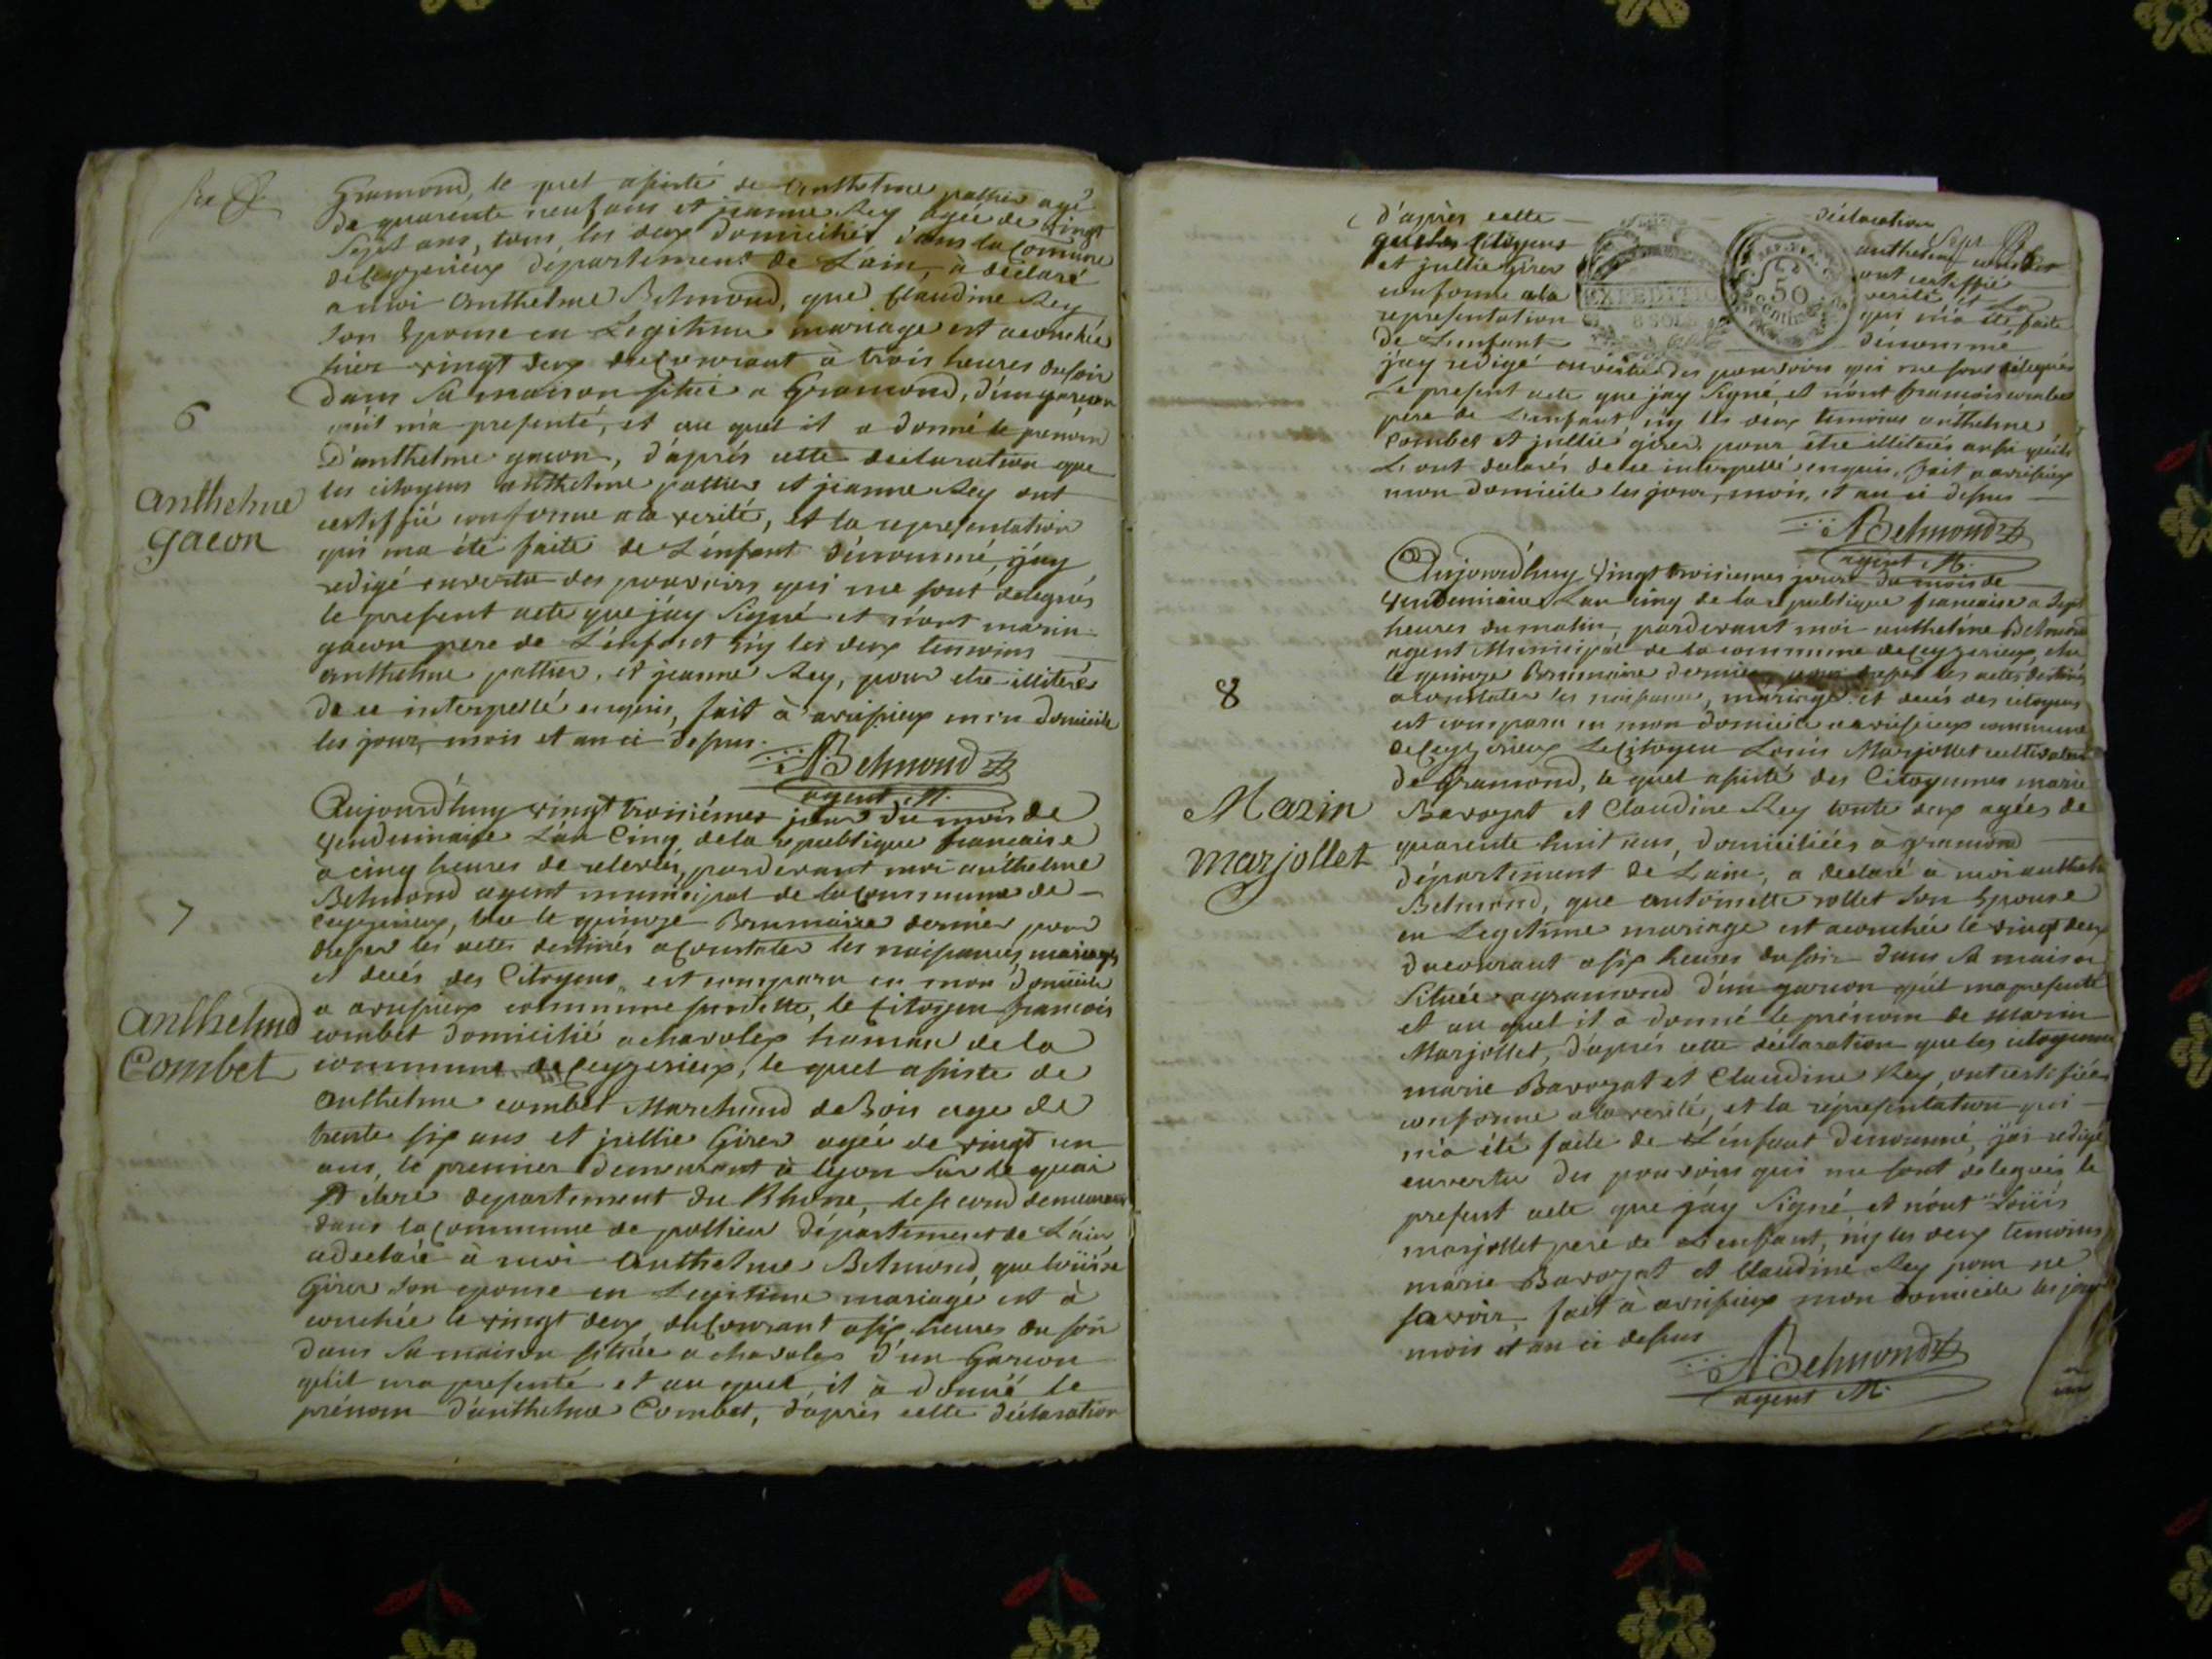 Gramond, le quel assisté de anthelme pattier agé
de quarente neuf ans et jeanne Rey agée de vingt
Sept ans, tous les deux domiciliés dans la Comune
de Ceyzerieux département de Lain, à déclaré
a moi Anthelme Belmond, que Claudine Rey
son Epouse en Legitime mariage est acouchée
hier vingt deux du Courant à trois heures du soir
Dans sa maison sitüée a Gramond, d'un garson
quil m'a presenté, et au quel il a donné le prenom
6
D'anthelme gacon, d'après cette declaration que
Anthelme
gacon
les citoyens anthelme pattier et jeanne Rey ont
certiffié conforme a la verité, et la representation
qui ma été faite de L'enfant dénommé, j'ay
redigé en vertu des pouvoirs qui me sont delegués
le present acte que j'ay signé et n'ont marin
gacon pere de L'enfant n'y les deux temoins
anthelme pattier, et jeanne Rey, pour etre illiterés
de ce interpellé enquis, fait à avrissieux mon domicile
les jour, mois et an ci dessus.
ABelmond
agent M.
Aujourd'huy vingt troisiémes jour du mois de
Vendemiaire L'an Cinq de la republique francaise
à cinq heures de relevée, pardevant moi anthelme
Belmond agent municipal de la Commune de
7
Ceyzerieux, élu le quinze Brumaire dernier pour
dresser les actes destinés a Constater les naissances, mariages
et decés des Citoyens, est comparu en mon domicile
a avrissieux commune susditte, le Citoyen francois
Anthelme
Combet
combet domicilié a chavolex hamau de la
commune de Ceyzerieux, le quel assiste de
anthelme combet Marchand de Bois age de
trente six ans et jullie Girer agée de vingt un
ans, le premier demeurant à leyon sur le quai
département du Rhône, le second demeurant
dans la Commune de pollieu département de Lain
a declaré à moi Anthelme Belmond, que loüise
Girer son epouse en Legitime mariage est à
couchée le vingt deux du Courant a six heures du soir
dans sa maison sitüée a chavolex d'un Garson
quil ma presenté et au quel il à donné le
prénom d'anthelme Combet, d'après cette déclaration
d'après cette déclaration
que les Citoyens anthelme combet
et jullie Girer ont certiffié
conforme a la verité et la
representation qui m'a été faite
de L'enfant dénommé
EXPEDITIO
8 SOLS
50
j'ay redigé en vertu des pouvoirs qui me sont délegués
Le present acte que j'ay signé, et n'ont francois combet
pere de L'enfant n'y les deux temoins anthelme
Combet et jullie girer, pour être illiterés ainsi qu'ils
L'ont declarés de ce interpellé enquis, fait a avrissieux
mon domicile les jour, mois, et an ci dessus
ABelmond
agent M.
Aujourd'huy vingt troisiemes jour du mois de
Vendemiaire L'an cinq de la republique francaise a Sept
heures du matin, pardevant moi anthelme Belmond
agent Municipal de la commune de Ceyzerieux, elu
8
le quinze Brumaire dernier pour dresser les actes destinés
a constater les naissances, mariages et decés des citoyens
est comparu en mon domicile a avrissieux commune
de Ceyzerieux Le Citoyen Louis Marjollet cultivateur
de Gramond, le quel assisté des Citoyennes marie
Marin
marjollet
Bavozat et Claudine Rey toute deux agées de
quarente huit ans, domiciliées à gramond
département de Lain, a declaré à moi anthelme
Belmond, que antoinette rollet son Epouse
en Legitime mariage est acouchée le vingt deux
du courant a six heures du soir dans sa maison
Sitüée a gramond d'un garcon qu'il ma presenté
et au quel il a donné le prénom de marin
Marjollet, d'après cette déclaration que les citoyennes
marie Bavozat et Claudine Rey, ont certifiées
conforme a la verité, et la répresentation qui
m'a été faite de L'énfant dénommé, j'ai redigé
en vertu des pouvoirs qui me sont delegués le
present acte que j'ay signé et n'ont Loüis
marjollet pere de L'enfant, n'y les deux temoins
marie Bavozat et Claudine Rey pour ne
savoir, fait à avrissieux mon domicile les jour
mois et an ci dessus
ABelmond
agent M.